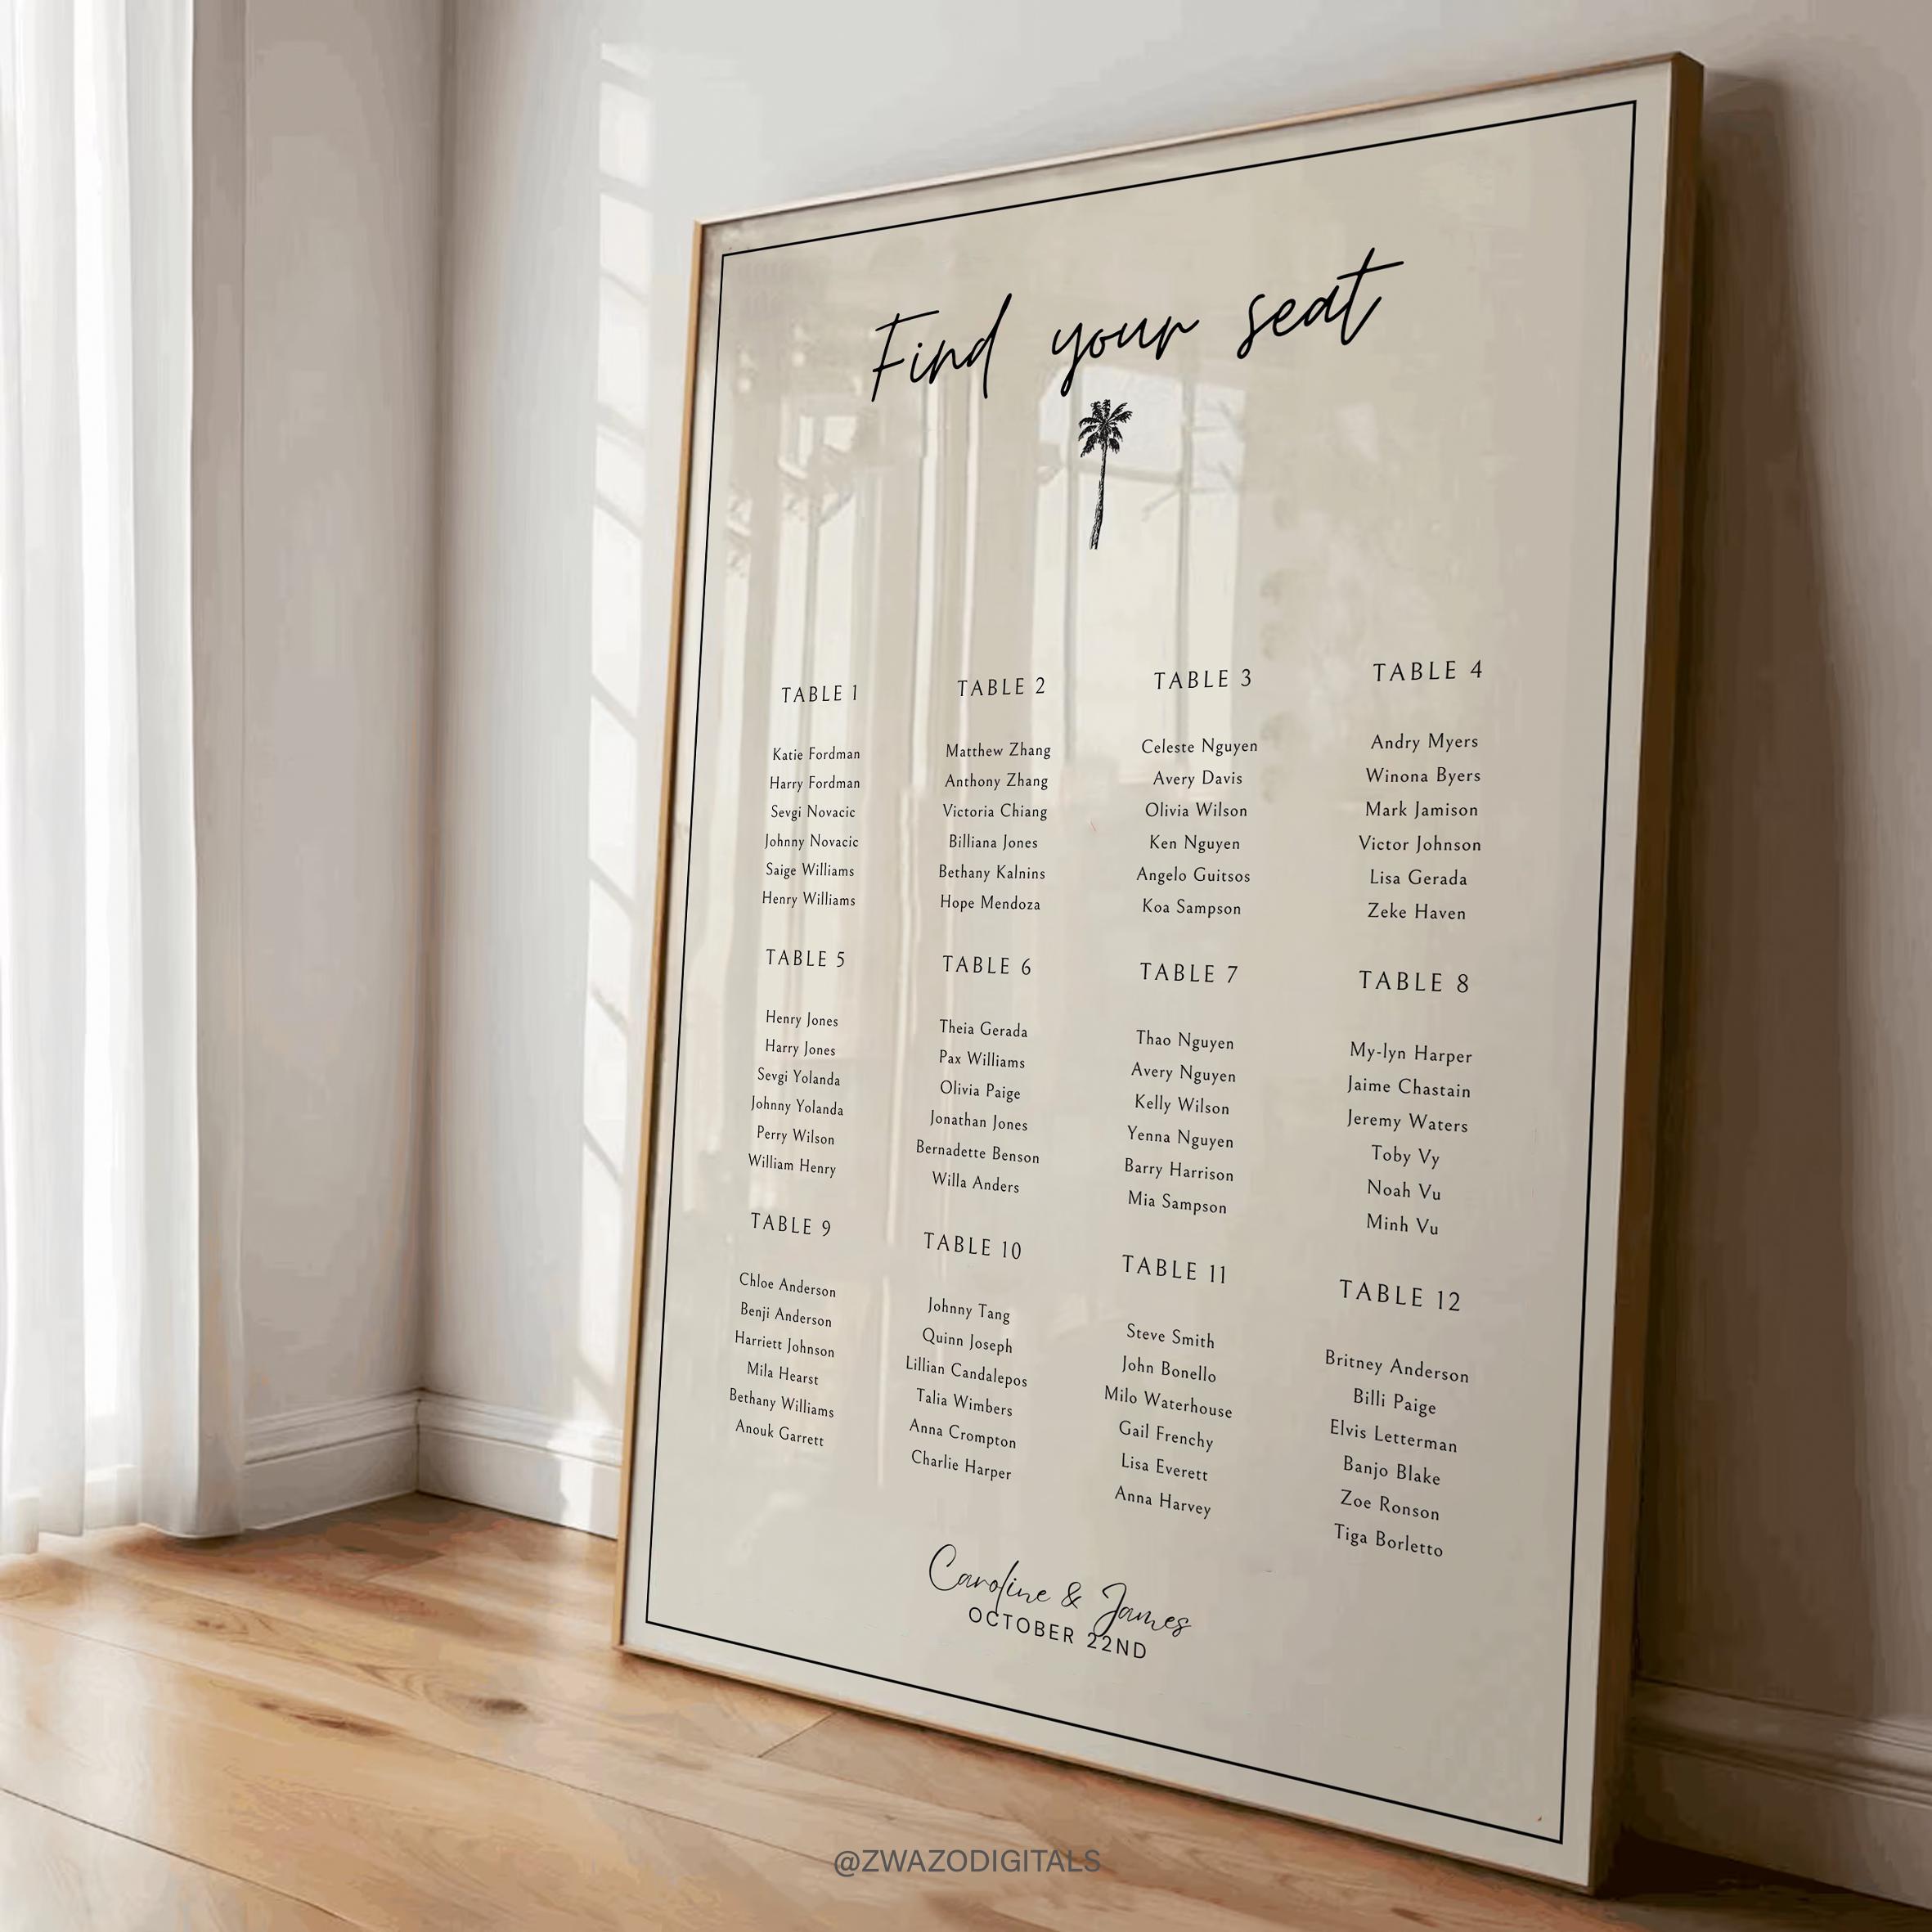 Find your seat
TABLE 1
Katie Fordman
Harry Fordman
Sevgi Novacic
Johnny Novacic
Saige Williams
Henry Williams
TABLE 2
Matthew Zhang
Anthony Zhang
Victoria Chiang
Billiana Jones
Bethany Kalnins
Hope Mendoza
TABLE 3
Celeste Nguyen
Avery Davis
Olivia Wilson
Ken Nguyen
Angelo Guitsos
Koa Sampson
TABLE 4
Andry Myers
Winona Byers
Mark Jamison
Victor Johnson
Lisa Gerada
Zeke Haven
TABLE 5
Henry Jones
Harry Jones
Sevgi Yolanda
Johnny Yolanda
Perry Wilson
William Henry
TABLE 6
Theia Gerada
Pax Williams
Olivia Paige
Jonathan Jones
Bernadette Benson
Willa Anders
TABLE 7
Thao Nguyen
Avery Nguyen
Kelly Wilson
Yenna Nguyen
Barry Harrison
Mia Sampson
TABLE 8
My-lyn Harper
Jaime Chastain
Jeremy Waters
Toby Vy
Noah Vu
Minh Vu
TABLE 9
Chloe Anderson
Benji Anderson
Harriett Johnson
Mila Hearst
Bethany Williams
Anouk Garrett
TABLE 10
Johnny Tang
Quinn Joseph
Lillian Candalepos
Talia Wimbers
Anna Crompton
Charlie Harper
TABLE 11
Steve Smith
John Bonello
Milo Waterhouse
Gail Frenchy
Lisa Everett
Anna Harvey
TABLE 12
Britney Anderson
Billi Paige
Elvis Letterman
Banjo Blake
Zoe Ronson
Tiga Borletto
Caroline & James
OCTOBER 22ND
@ZWAZODIGITALS